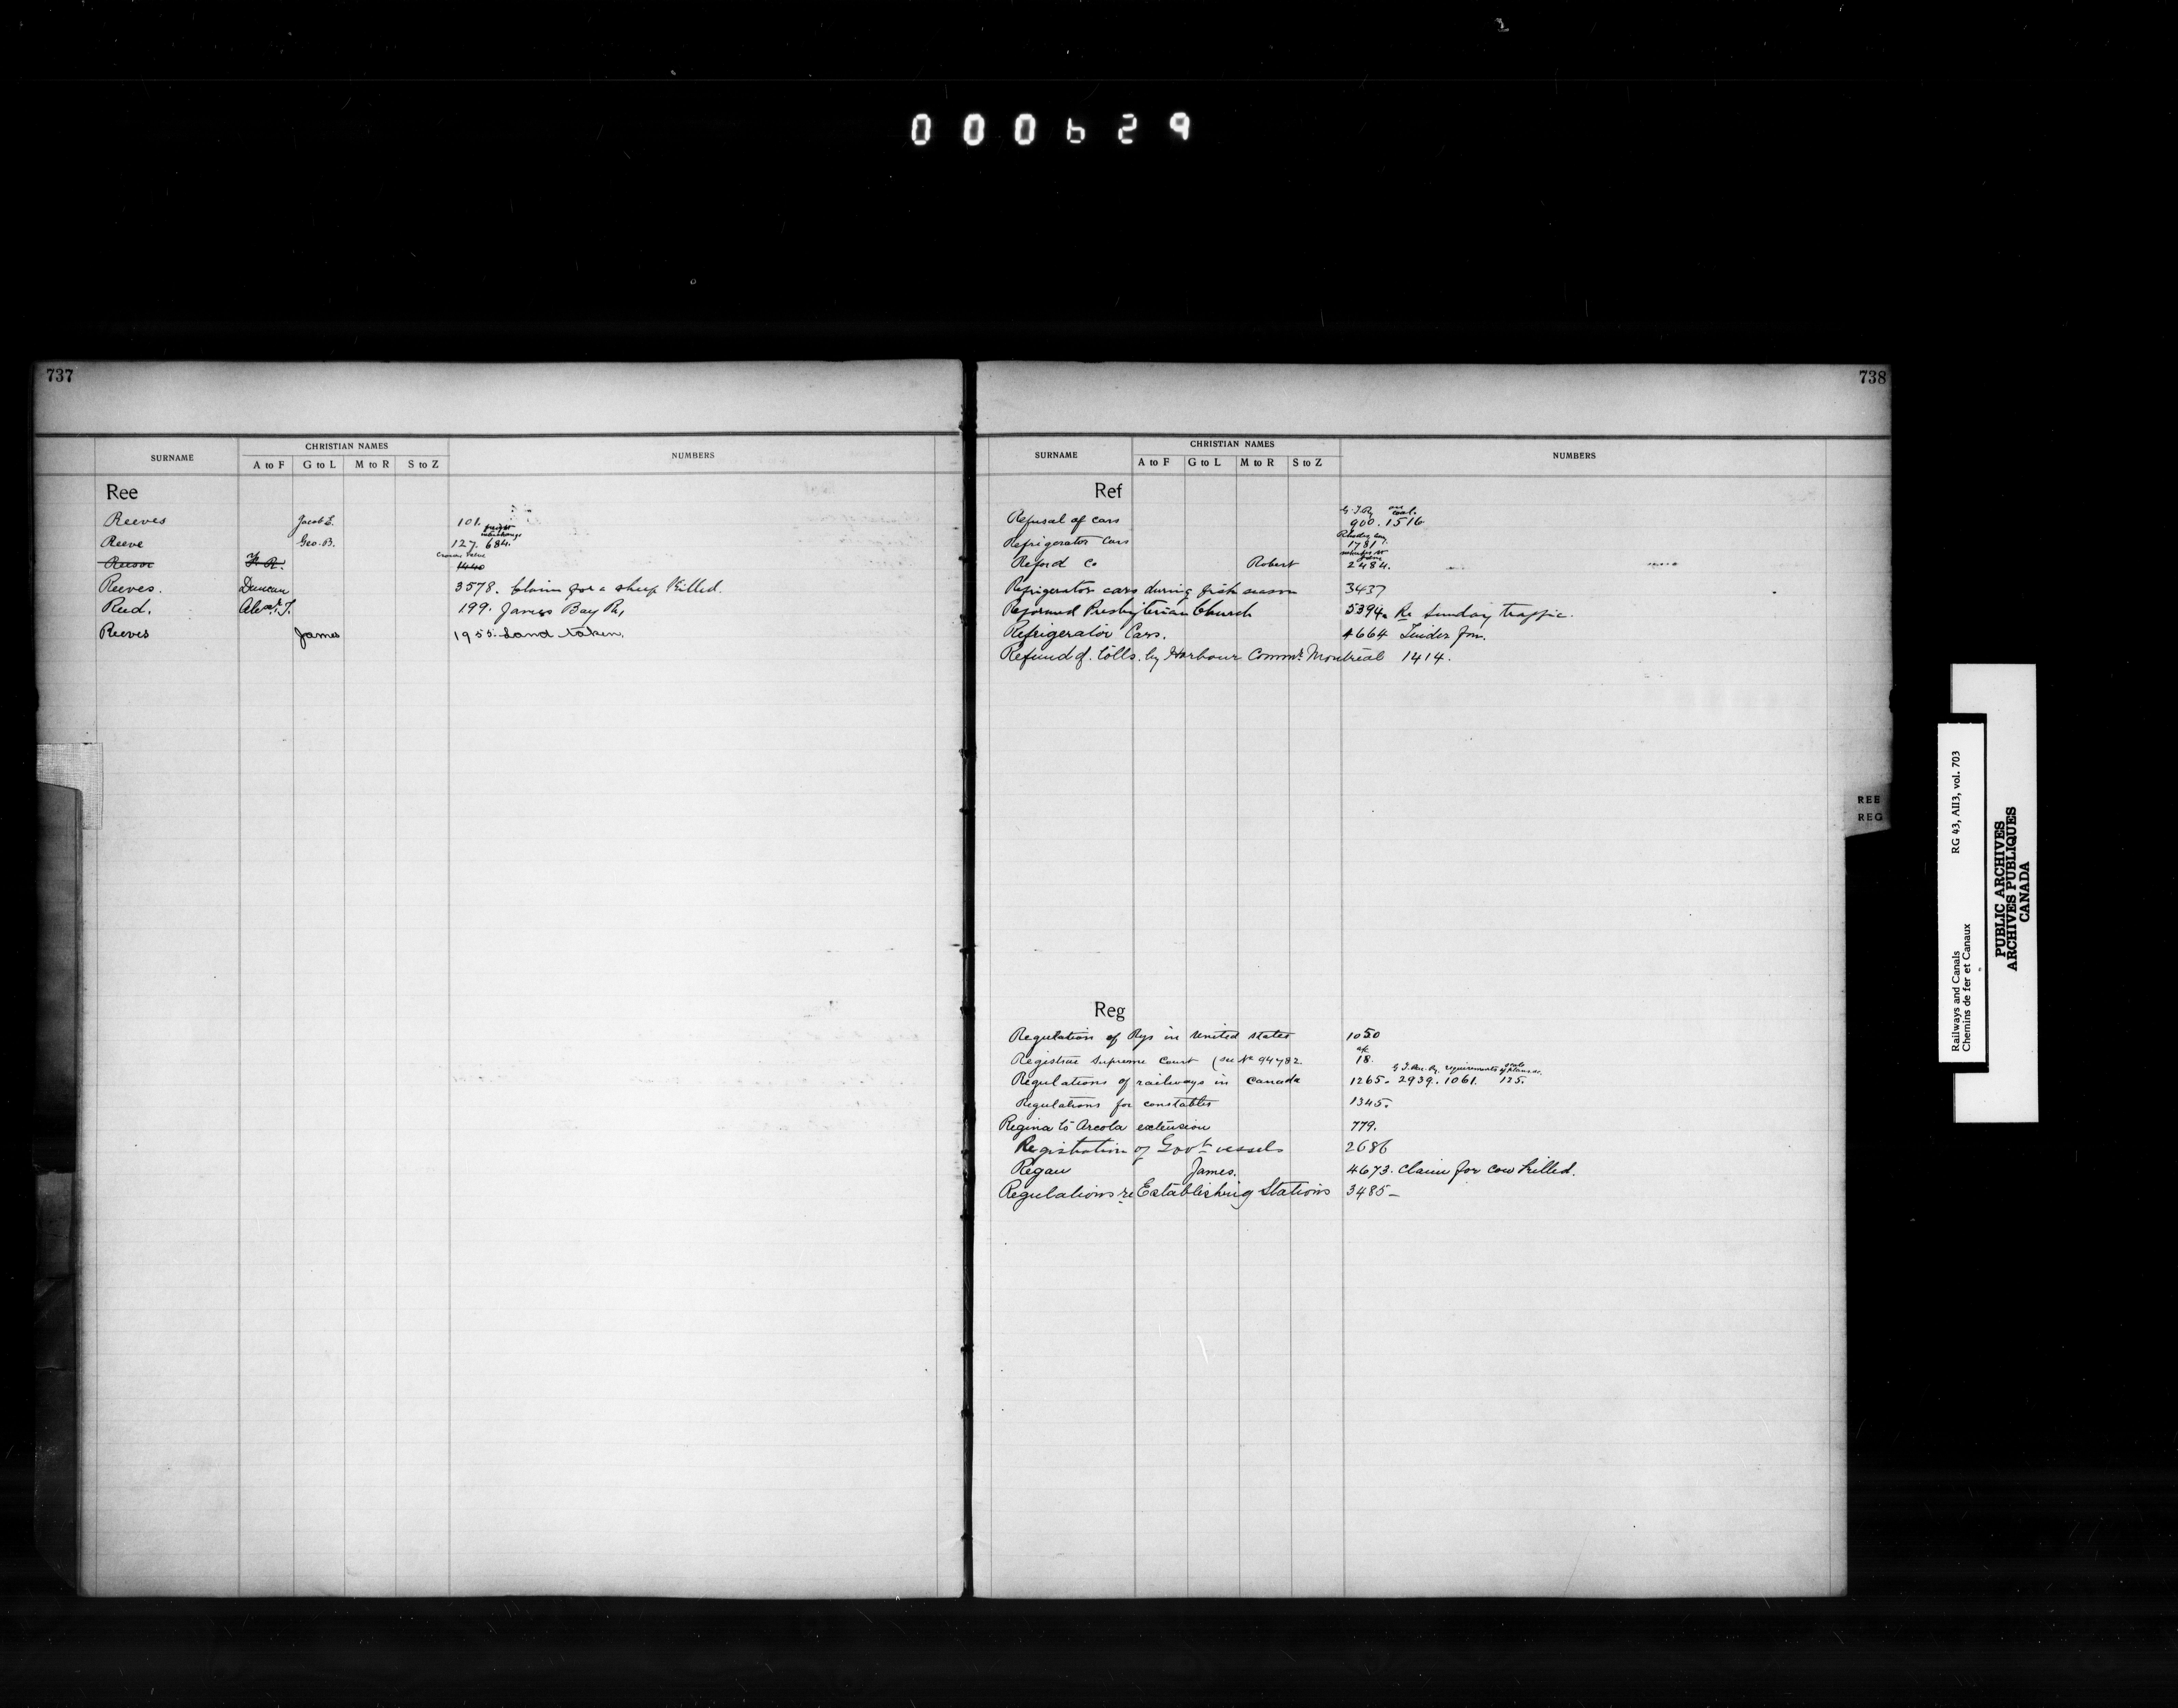 000629
737
SURNAME CHRISTIAN NAMES NUMBERS
A to F G to L M to R S to Z
Ree
Reeves Jacob E. 101.
freight interchange
Reeve Geo. B. 127. 684.
Reesor F. R. 1440
Reeves. Duncan 3578. Claim for a sheep Killed.
Reed. Alexr. T. 199. James Bay Ry,
Reeves James 1955. Land taken.
738
SURNAME CHRISTIAN NAMES NUMBERS
A to F G to L M to R S to Z
Ref
G.T.Ry on coal.
Refusal of cars 900. 1516
Refrigerator Cars 1781
Reford Co Robert 2484.
Refrigerator cars during fish season 3437
Reformed Presbyterian Church 5394. Re Sunday traffic.
Refrigerator Cars. 4664 Tender for.
Refund of Tolls by Harbour Commrs Montreal 1414.
Reg
Regulation of Rys in United States 1050
Registrar Supreme Court (see No 94782 18.
G.T. Pac. Ry. requirements of plans &c.
Regulations of railways in Canada 1265. 2939. 1061. 125.
Regulations for constables 1345.
Regina to Arcola extension 779.
Registration of Govt vessels 2686
Regan James. 4673. Claim for cow killed.
Regulations re Establishing Stations 3485 -
REE
REG
Railways and Canals RG 43, AII3, vol. 703
Chemins de fer et Canaux
PUBLIC ARCHIVES
ARCHIVES PUBLIQUES
CANADA